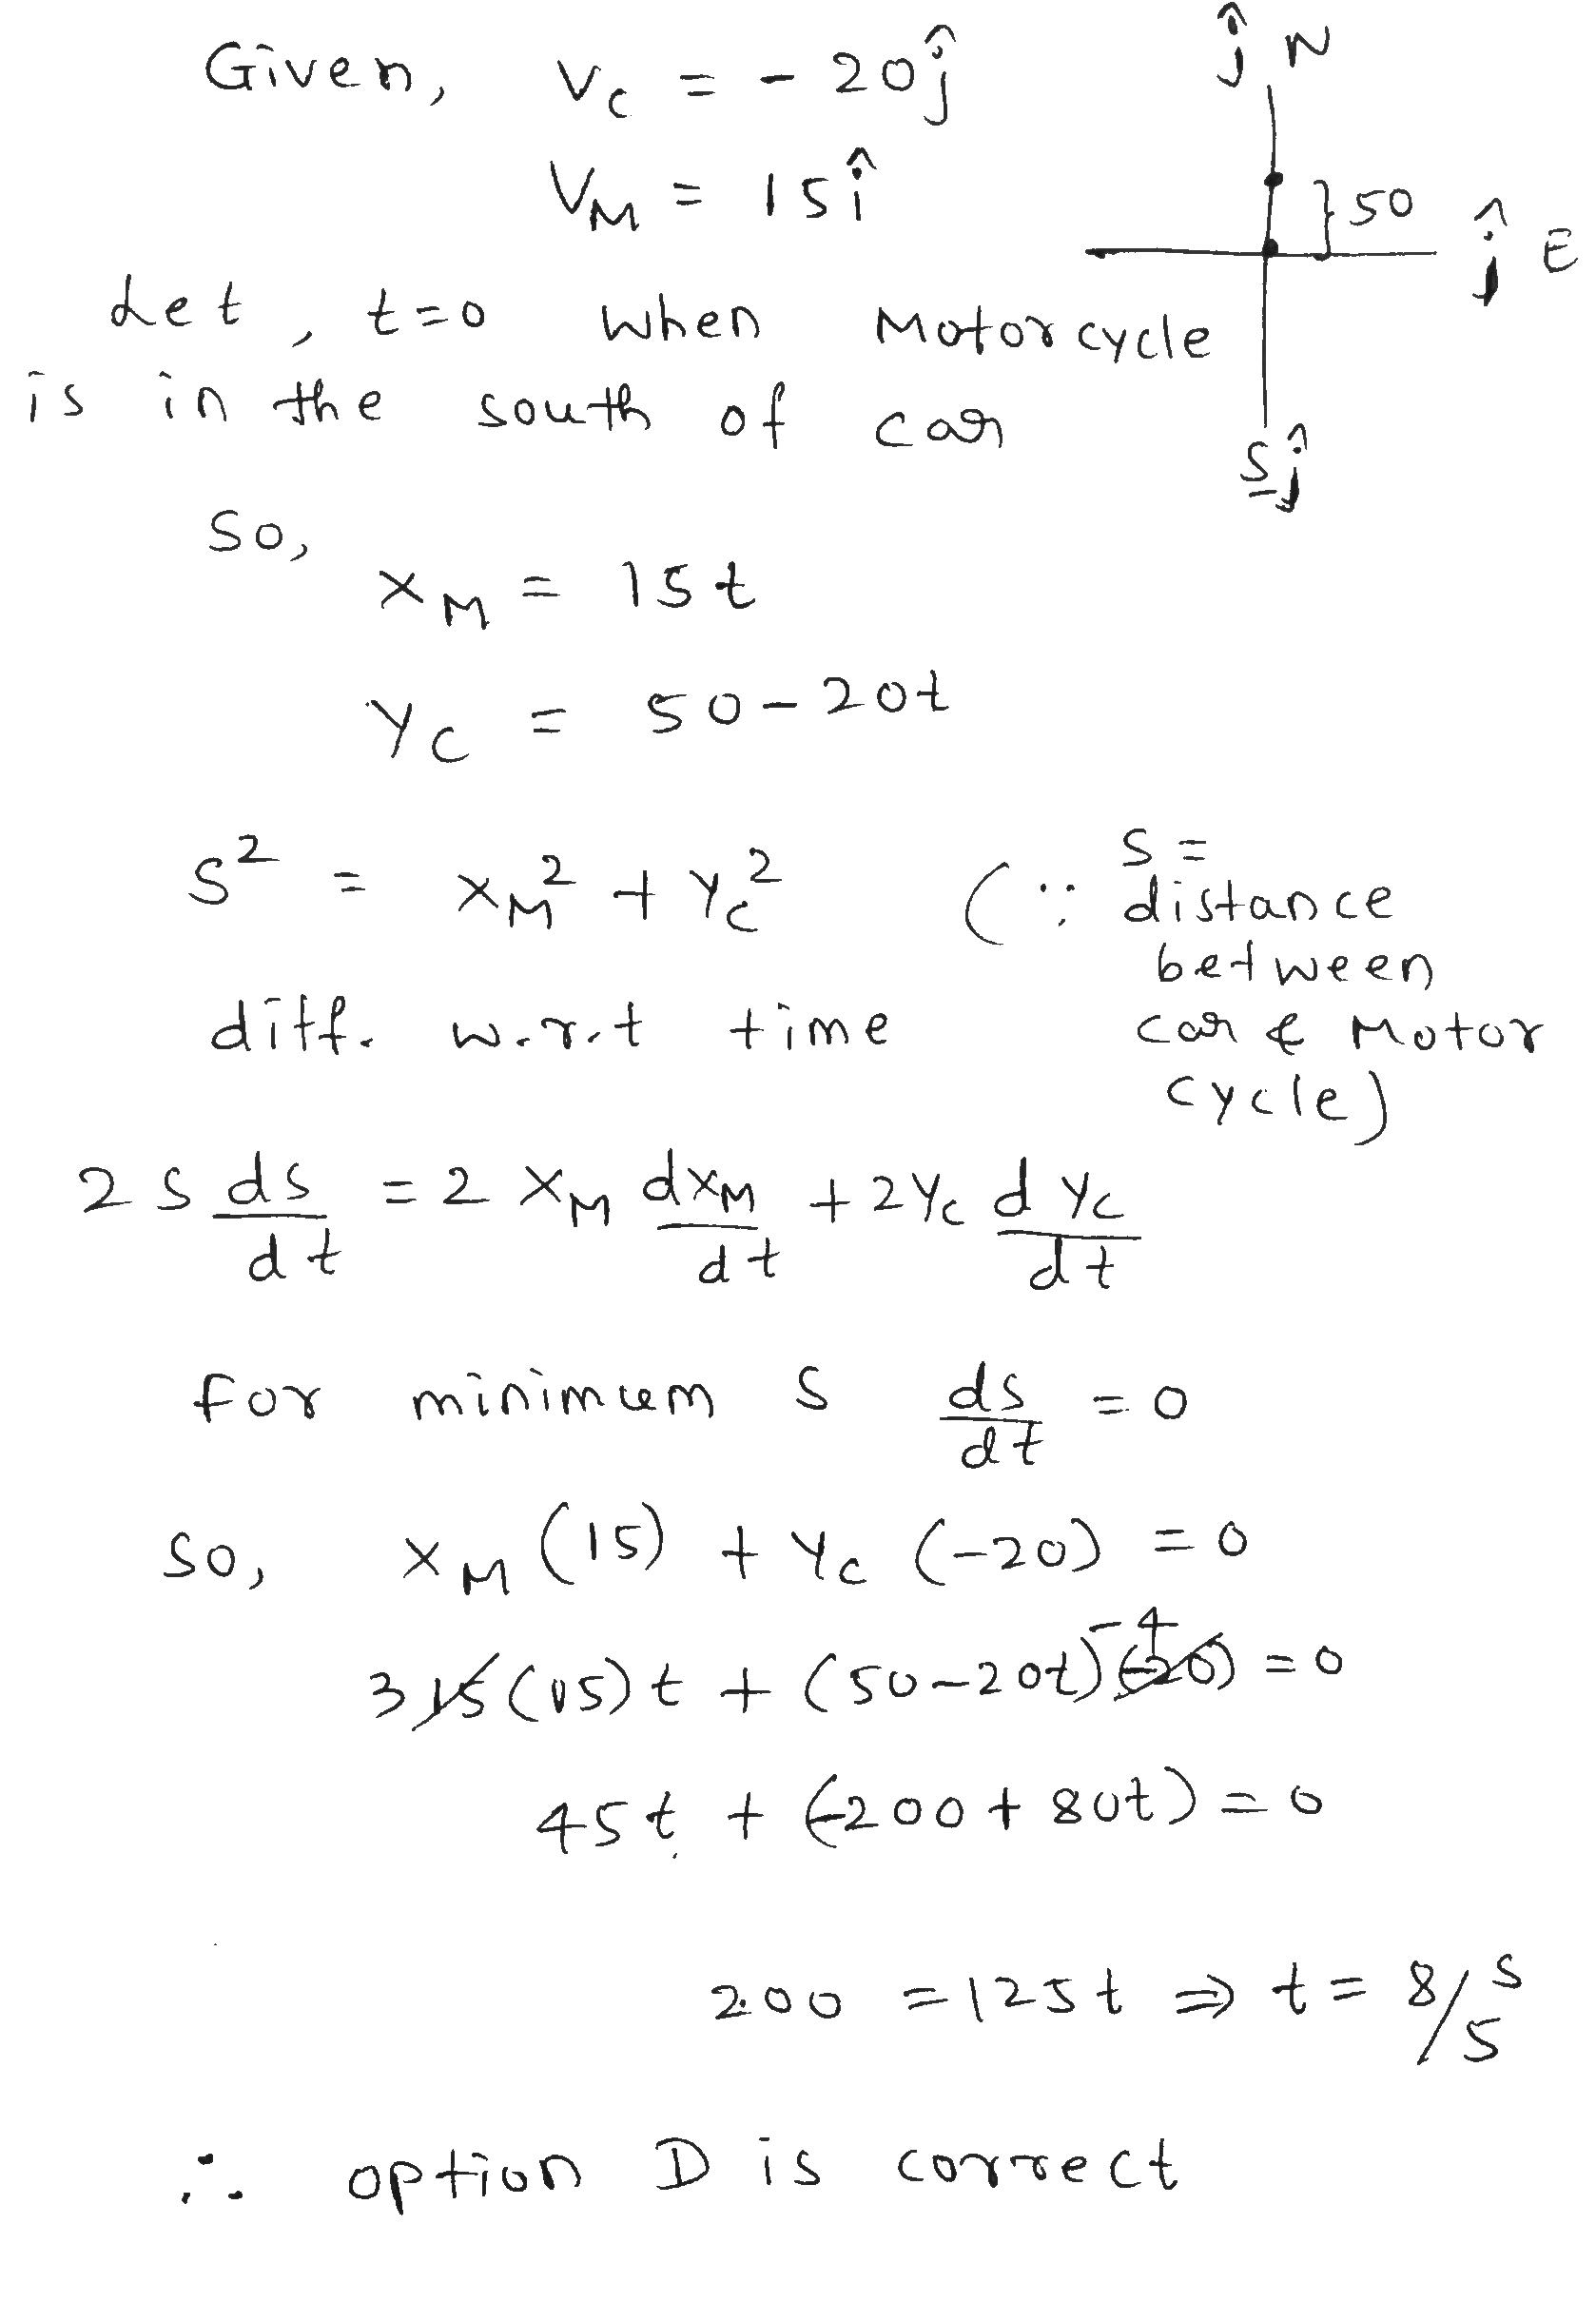 Given, Vc = - 20ĵ
ĵ N
VM = 15î
}50
ĵ E
Let, t=0 when Motorcycle
is in the south of car
S ĵ
So,
xM = 15t
Yc = 50-20t
S² = xM² + Yc² (∵ S = distance between car & Motor cycle)
diff. w.r.t time
2 S dS/dt = 2 xM dxM/dt + 2Yc dYc/dt
for minimum S dS/dt = 0
So, xM (15) + Yc (-20) = 0
3 15(15)t + (50-20t)(-20) -4 = 0
45t + (-200 + 80t) = 0
200 = 125t ⇒ t = 8/5 s
∴ option D is correct